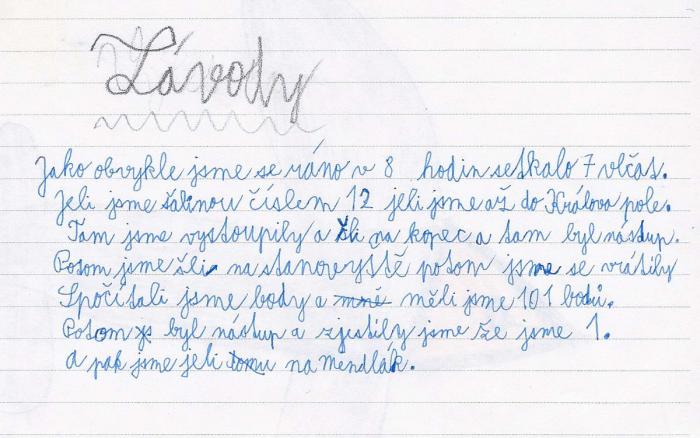 Závody
Jako obvykle jsme se ráno v 8 hodin setkalo 7 vlčat.
Jeli jsme šalinou číslem 12 jeli jsme až do Králova pole.
Tam jsme vystoupily a šli na kopec a tam byl nástup.
Potom jsme šli na stanovyště potom jsme se vrátily
Spočítali jsme body a mně měli jsme 101 bodů.
Potom js byl nástup a zjestily jsme že jsme 1.
a pak jsme jeli tomu na Mendlák.